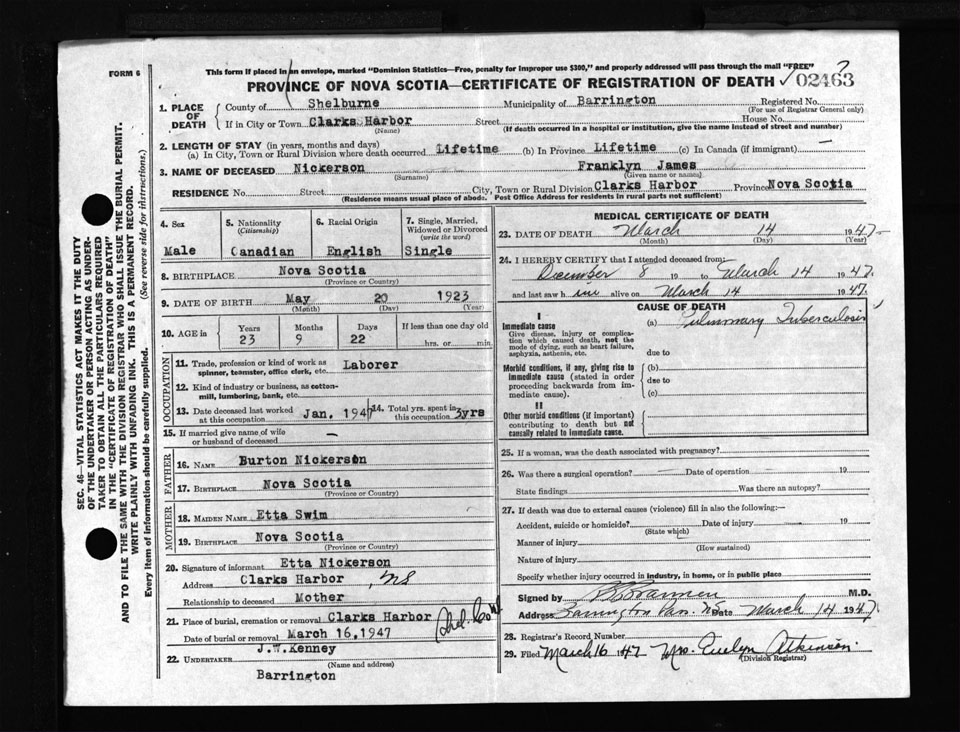 FORM 6
This form if placed in an envelope, marked "Dominion Statistics—Free, penalty for improper use $300," and properly addressed will pass through the mail "FREE"
PROVINCE OF NOVA SCOTIA—CERTIFICATE OF REGISTRATION OF DEATH 02463
1. PLACE OF DEATH
County of Shelburne Municipality of Barrington Registered No.
(For use of Registrar General only)
If in City or Town Clarks Harbor Street House No.
(Name) (If death occurred in a hospital or institution, give the name instead of street and number)
2. LENGTH OF STAY (in years, months and days)
(a) In City, Town or Rural Division where death occurred Lifetime (b) In Province Lifetime (c) In Canada (if immigrant) —
3. NAME OF DECEASED Nickerson Franklyn James
(Surname) (Given name or names)
RESIDENCE No. Street City, Town or Rural Division Clarks Harbor Province Nova Scotia
(Residence means usual place of abode. Post Office Address for residents in rural parts not sufficient)
4. Sex
Male
5. Nationality
(Citizenship)
Canadian
6. Racial Origin
English
7. Single, Married, Widowed or Divorced
(write the word)
Single
8. BIRTHPLACE Nova Scotia
(Province or Country)
9. DATE OF BIRTH May 20 1923
(Month) (Day) (Year)
10. AGE in Years Months Days If less than one day old
23 9 22 hrs. or min.
OCCUPATION
11. Trade, profession or kind of work as spinner, teamster, office clerk, etc. Laborer
12. Kind of industry or business, as cotton-mill, lumbering, bank, etc.
13. Date deceased last worked at this occupation Jan. 1947
14. Total yrs. spent in this occupation 3yrs
15. If married give name of wife or husband of deceased —
FATHER
16. NAME Burton Nickerson
17. BIRTHPLACE Nova Scotia
(Province or Country)
MOTHER
18. MAIDEN NAME Etta Swim
19. BIRTHPLACE Nova Scotia
(Province or Country)
20. Signature of informant Etta Nickerson
Address Clarks Harbor, NS
Relationship to deceased Mother
21. Place of burial, cremation or removal Clarks Harbor Shel. Co
Date of burial or removal March 16, 1947
22. UNDERTAKER J.W.Kenney
(Name and address)
Barrington
MEDICAL CERTIFICATE OF DEATH
23. DATE OF DEATH March 14 1947
(Month) (Day) (Year)
24. I HEREBY CERTIFY that I attended deceased from:
December 8 19 to March 14 1947
and last saw him alive on March 14 1947
CAUSE OF DEATH
I
Immediate cause
Give disease, injury or complication which caused death, not the mode of dying, such as heart failure, asphyxia, asthenia, etc.
(a) Pulmonary Tuberculosis
due to
Morbid conditions, if any, giving rise to immediate cause (stated in order proceeding backwards from immediate cause).
(b)
due to
(c)
II
Other morbid conditions (if important) contributing to death but not causally related to immediate cause.
25. If a woman, was the death associated with pregnancy?
26. Was there a surgical operation? — Date of operation — 19
State findings Was there an autopsy?
27. If death was due to external causes (violence) fill in also the following:—
Accident, suicide or homicide? Date of injury 19
(State which)
Manner of injury
(How sustained)
Nature of injury
Specify whether injury occurred in industry, in home, or in public place
Signed by M.D.
Address Barrington Pass. NS Date March 14 1947
28. Registrar's Record Number
29. Filed March 16 1947 Mrs. Evelyn Atkinson
(Division Registrar)
SEC. 46—VITAL STATISTICS ACT MAKES IT THE DUTY
OF THE UNDERTAKER OR PERSON ACTING AS UNDER-
TAKER TO OBTAIN ALL THE PARTICULARS REQUIRED
IN THE "CERTIFICATE OF REGISTRATION OF DEATH"
AND TO FILE THE SAME WITH THE DIVISION REGISTRAR WHO SHALL ISSUE THE BURIAL PERMIT.
WRITE PLAINLY WITH UNFADING INK. THIS IS A PERMANENT RECORD.
Every item of information should be carefully supplied. (See reverse side for instructions.)